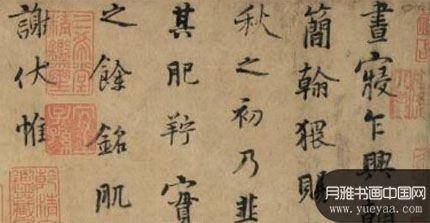 晝寢乍興
簡翰猥賜
秋之初乃韭
其肥羜實
之餘銘肌
謝伏惟
三希堂精鑒璽
宜子孫
月雅书画中国网
www.yueyaa.com